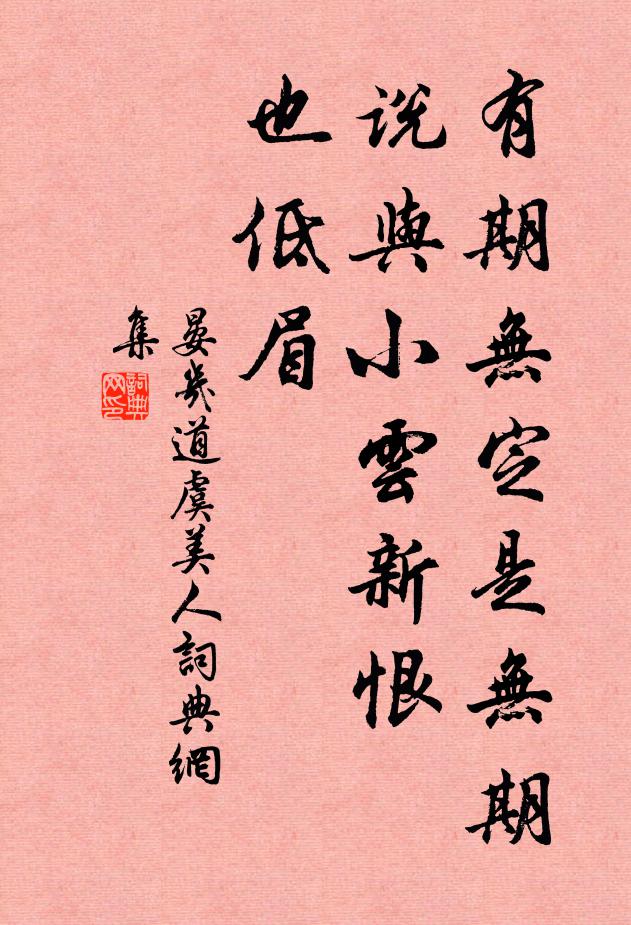 有期無定是無期
說與小雲新恨
也低眉
晏幾道虞美人詞典網
集
詞典網印